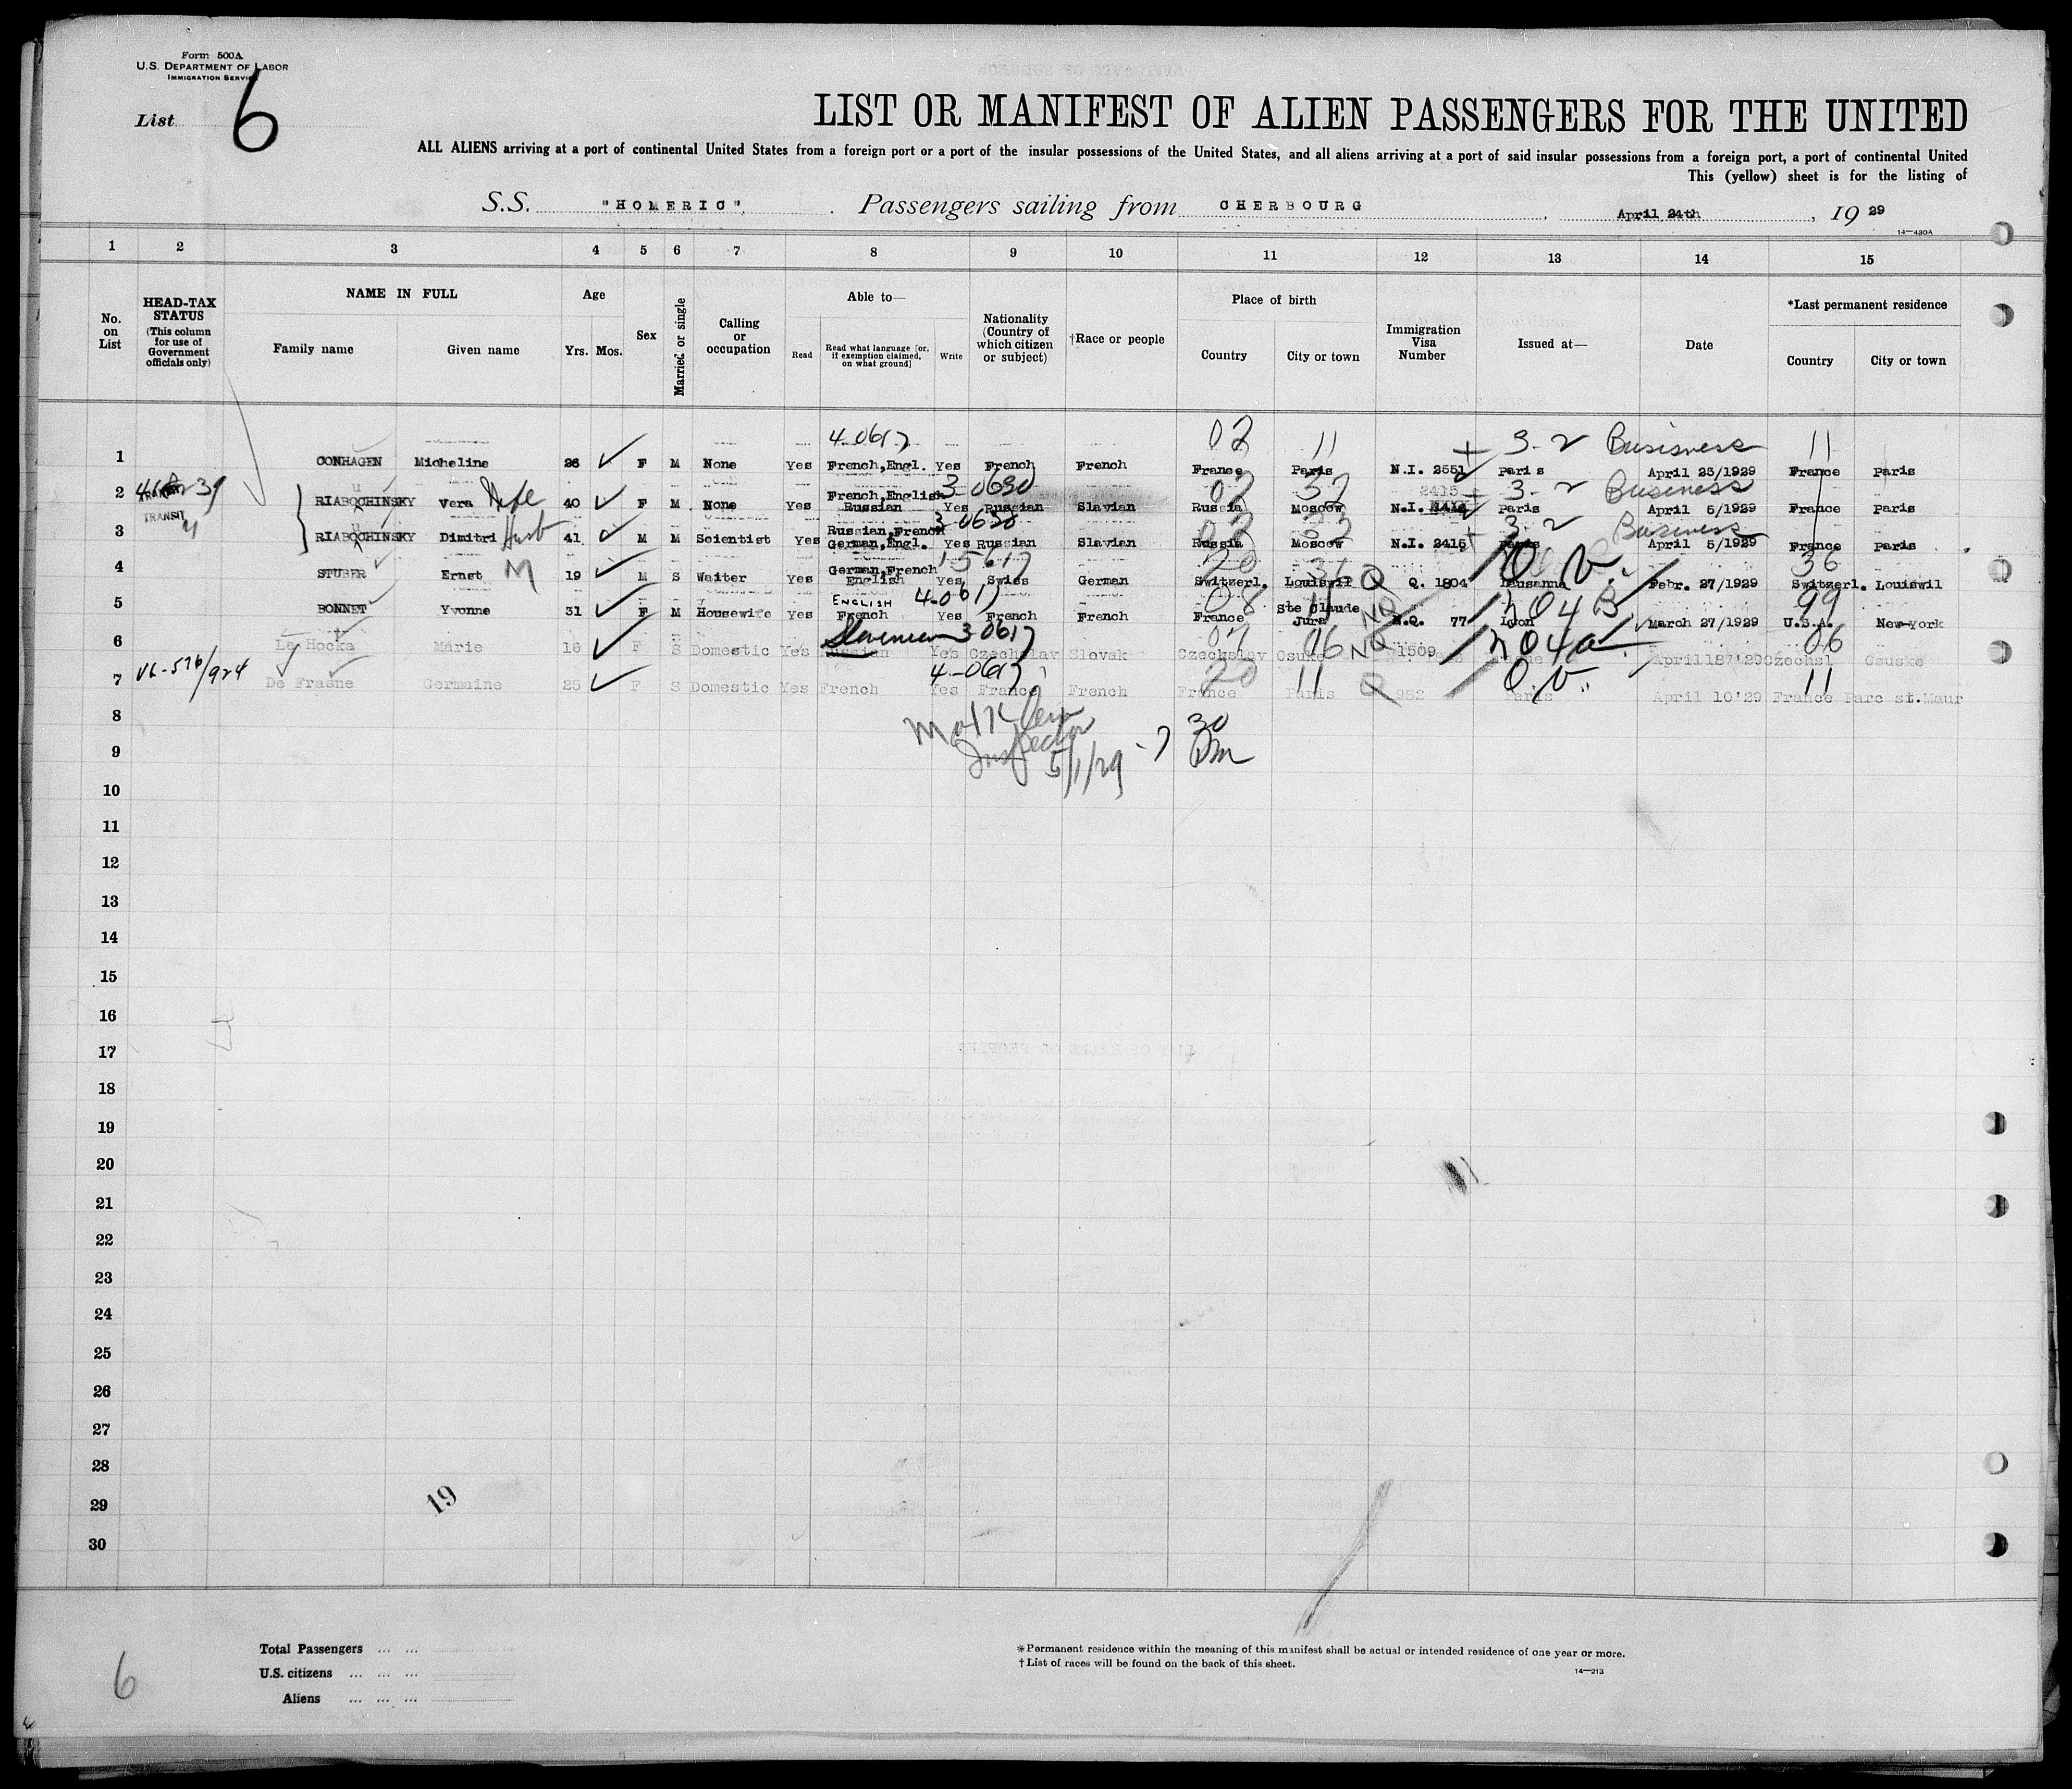 Form 500A
U.S. DEPARTMENT OF LABOR
IMMIGRATION SERVICE
List 6
LIST OR MANIFEST OF ALIEN PASSENGERS FOR THE UNITED
ALL ALIENS arriving at a port of continental United States from a foreign port or a port of the insular possessions of the United States, and all aliens arriving at a port of said insular possessions from a foreign port, a port of continental United
This (yellow) sheet is for the listing of
S.S. "HOMERIC", Passengers sailing from CHERBOURG, April 24th, 1929
14—430A
1 2 3 4 5 6 7 8 9 10 11 12 13 14 15
No. on List
HEAD-TAX STATUS (This column for use of Government officials only)
NAME IN FULL
Family name Given name
Age
Yrs. Mos.
Sex
Married or single
Calling or occupation
Able to—
Read
Read what language [or, if exemption claimed, on what ground]
Write
Nationality (Country of which citizen or subject)
†Race or people
Place of birth
Country City or town
Immigration Visa Number
Issued at—
Date
*Last permanent residence
Country City or town
4-0617 02 11 3-2 Business 11
1 CONHAGEN Micheline 26 F M None Yes French,Engl. Yes French French France Paris N.I. 2551 Paris April 23/1929 France Paris
TRANSIT 3-0630 02 37 2415 3-2 Business
2 RIABOCHINSKY Vera Wife 40 F M None Yes French,English Russian Yes Russian Slavian Russia Moscow N.I. Paris April 5/1929 France Paris
TRANSIT 3-0630 02 3-2 Business
3 RIABOCHINSKY Dimitri Husb 41 M M Scientist Yes Russian,French German,Engl. Yes Russian Slavian Russia Moscow N.I. 2415 Paris April 5/1929 France Paris
1-5617 20 37 36
4 STUBER Ernst M 19 M S Waiter Yes German,French English Yes Swiss German Switzerl. Louiswil Q Q. 1804 Lausanne Febr. 27/1929 Switzerl. Louiswil
ENGLISH 4-0617 08 11 NQ 204B 99
5 BONNET Yvonne 31 F M Housewife Yes French Yes French French France Ste Claude Jura N.Q. 77 Lyon March 27/1929 U.S.A. New-York
Slovenian 3-0617 07 06 NQ 204a 06
6 Le Hocka Marie 16 F S Domestic Yes Russian Yes Czechslav Slovak Czechslav Osuske 1509 April 18'29 Czechsl Osuske
V6-576/924 4-0617 20 11 Q Q.V. 11
7 De Frasne Germaine 25 F S Domestic Yes French Yes France French France Paris 982 Paris April 10'29 France Parc st.Maur
8
Inspector 5/1/29 - 7 30 Pm
9
10
11
12
13
14
15
16
17
18
19
20
21
22
23
24
25
26
27
28
29
30
19
Total Passengers ... ...
U.S. citizens ... ... ...
Aliens ... ... ...
6
*Permanent residence within the meaning of this manifest shall be actual or intended residence of one year or more.
†List of races will be found on the back of this sheet.
14—213